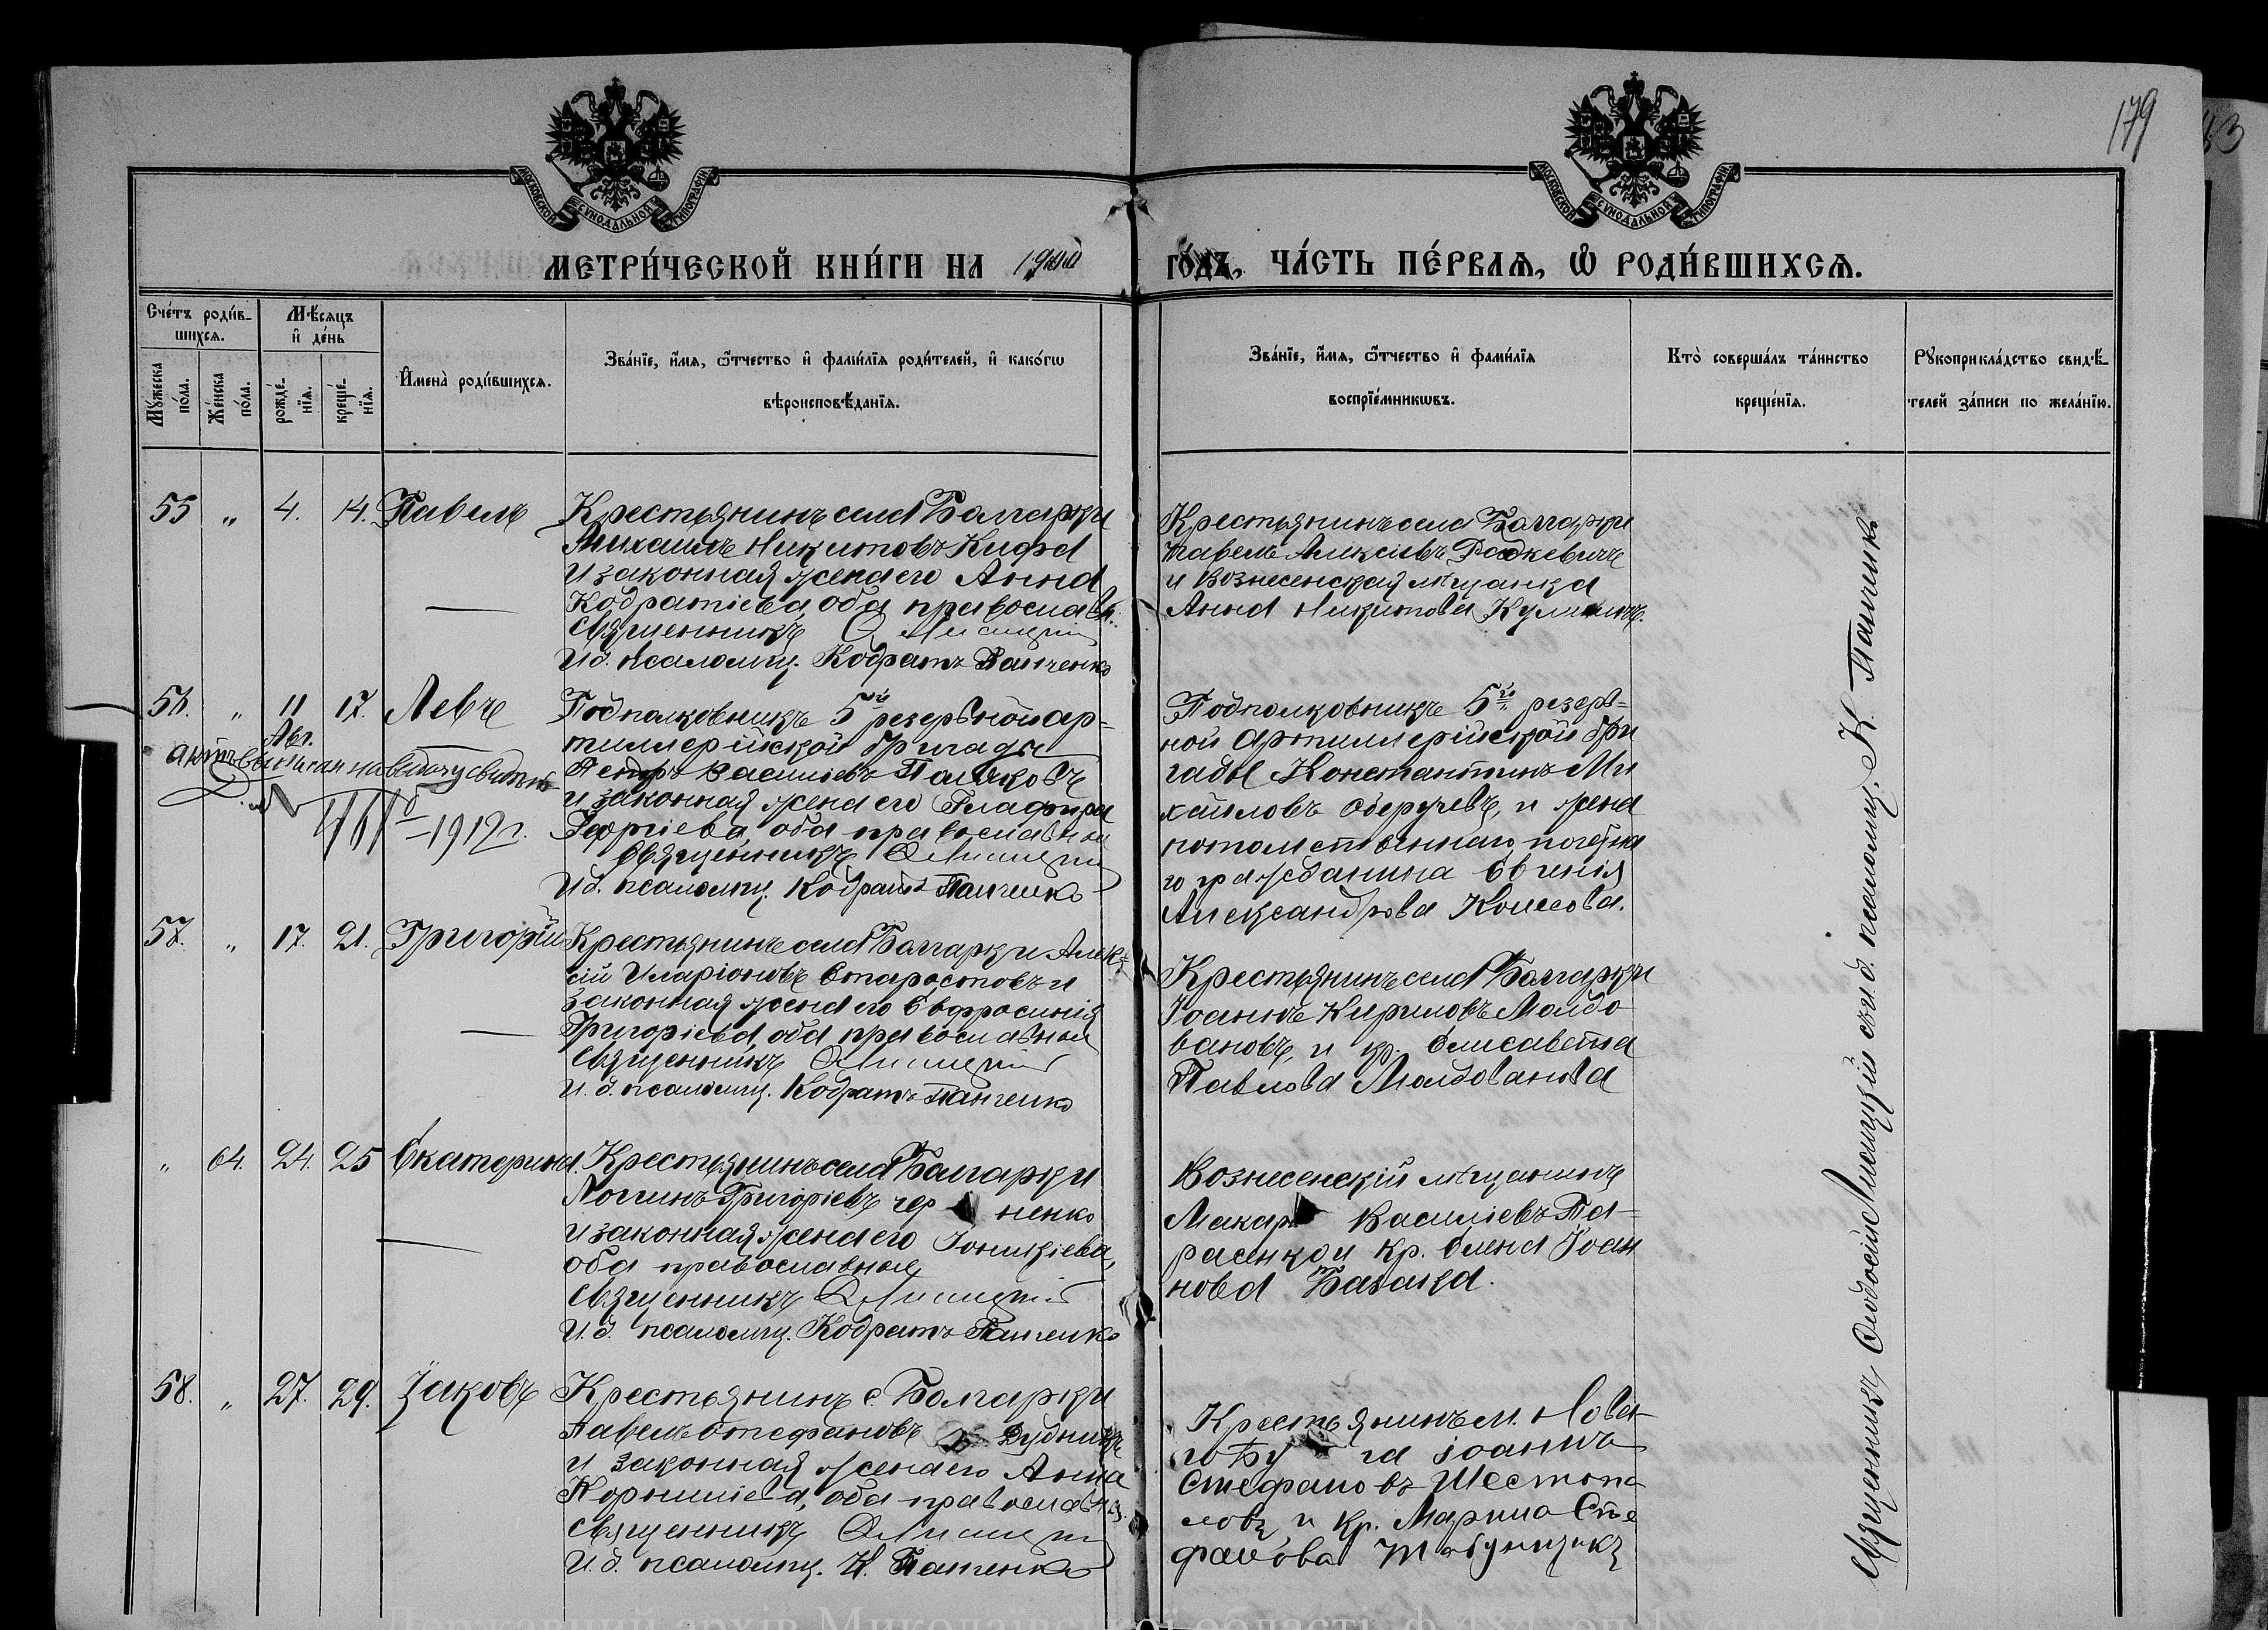 179
МОСКОВСКОЙ СѴНОДАЛЬНОЙ ТИПОГРАФІИ
МОСКОВСКОЙ СѴНОДАЛЬНОЙ ТИПОГРАФІИ
МЕТРИ́ЧЕСКОЙ КНИ́ГИ НА
ГО́ДЪ, ЧА́СТЬ ПЕ́РВАѦ, Ѽ РОДИ́ВШИХСѦ.
Сче́тъ роди́в-
шихсѧ.
Мꙋ́жеска по́ла.
Же́нска по́ла.
Мѣ́сѧцъ
и҆ де́нь
рожде́-
нїѧ.
креще́-
нїѧ.
И҆мена̀ роди́вшихсѧ.
Зва́нїе, и҆́мѧ, ѻ҆́тчество и҆ фами́лїѧ роди́телей, и҆ како́гѡ
вѣроисповѣ́данїѧ.
Зва́нїе, и҆́мѧ, ѻ҆́тчество и҆ фами́лїѧ
воспрїе́мникѡвъ.
Кто̀ соверша́лъ та́инство
креще́нїѧ.
Рꙋкоприкла́дство свидѣ́-
телей за́писи по жела́нїю.
55 „ 4. 14. Павелъ
Крестьянинъ села Болгарки
Михаилъ Никитовъ
и законная жена его Анна
Кодратіева, оба православн.
Священникъ Ѳ Лисицкій
И.д. псаломщ. Кодратъ Панченко
Крестьянинъ села Болгарки
Павелъ Алексіевъ Радкевичъ
и Вознесенская мѣщанка
Анна Никитова
56. „ 11 17. Левъ
Авг.
актъ выписан на выдачу свидѣт.
1912 г.
Подполковникъ 5й резервной ар-
тиллерійской бригады
Петръ Василіевъ Поляковъ
и законная жена его Глафира
Георгіева, оба православные
Священникъ Ѳ Лисицкій
И.д. псаломщ. Кодратъ Панченко
Подполковникъ 5й резерв-
ной Артиллерійской бри
гады Константинъ Ми
хаиловъ Оберучевъ, и жена
потомственнаго почетна
го гражданина Евгенія
Александрова Колесова.
57. „ 17. 21. Григорій
Крестьянинъ села Болгарки Алек-
сій Иларіоновъ Старостовъ и
законная жена его Евфросинія
Григоріева, оба православные
Священникъ Ѳ Лисицкій
И.д. псаломщ. Кодратъ Панченко
Крестьянинъ села Болгарки
Іоаннъ Кириловъ Молдо
вановъ, и кр. Елисавета
Павлова Молдованова
„ 64. 24. 25 Екатерина.
Крестьянинъ села Болгарки
Логинъ Григоріевъ чер ненко
и законная жена его Іоникіева,
оба православные
Священникъ Ѳ Лисицкій
И.д. псаломщ. Кодратъ Панченко
Вознесенскій мѣщанинъ
Макарій Василіевъ Та-
расенко и кр. Елена Іоан
нова
58. „ 27. 29. Іаковъ
Крестьянинъ с. Болгарки
Павелъ Стефановъ Дудникъ
и законная жена его Анна
Корниліева, оба православн.
Священникъ Ѳ Лисицкій
И.д. псаломщ. К. Панченко
Крестьянинъ м. Нова-
го Бу га Іоаннъ
Стефановъ Шестопа
ловъ и кр. Марина Сте
фанова
Священникъ Ѳеодосій Лисицкій съ и.д. псаломщ. К. Панченко